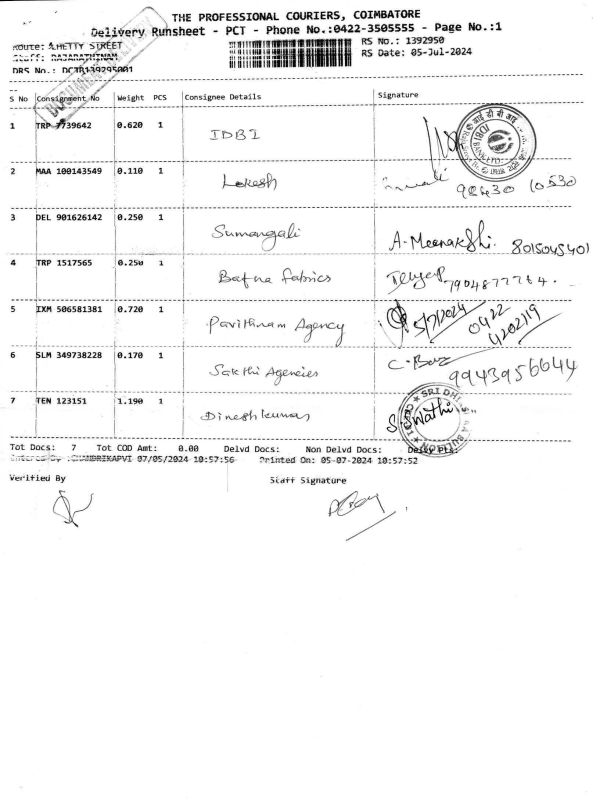 THE PROFESSIONAL COURIERS, COIMBATORE
Delivery Runsheet - PCT - Phone No.:0422-3505555 - Page No.:1
Route: A.HETTY STREET
RS No.: 1392950
Staff: RAJARATHINAM
RS Date: 05-Jul-2024
DRS No.:
S No Consignment No Weight PCS Consignee Details Signature
1 TRP 7739642 0.620 1 IDBI
2 MAA 100143549 0.110 1 Lokesh 98430 10530
3 DEL 901626142 0.250 1 Sumangali A. Meenakshi. 8015045401
4 TRP 1517565 0.250 1 Bafna fabrics 7904877764.
5 IXM 506581381 0.720 1 Pavithnam Agency 5/7/2024 0422 4202119
6 SLM 349738228 0.170 1 Sakthi Agencies 9943956644
7 TEN 123151 1.190 1 Dineshkumar Swathi
Tot Docs: 7 Tot COD Amt: 0.00 Delvd Docs: Non Delvd Docs:
07/05/2024 10:57:56 Printed On: 05-07-2024 10:57:52
Verified By Staff Signature